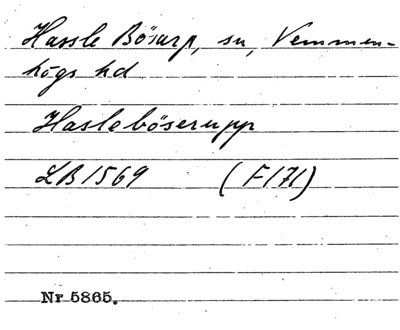 Hassle Bösarp, sn, Vemmen-
högs hd
Haslebőserupp
LB 1569 (F171)
Nr 5865.